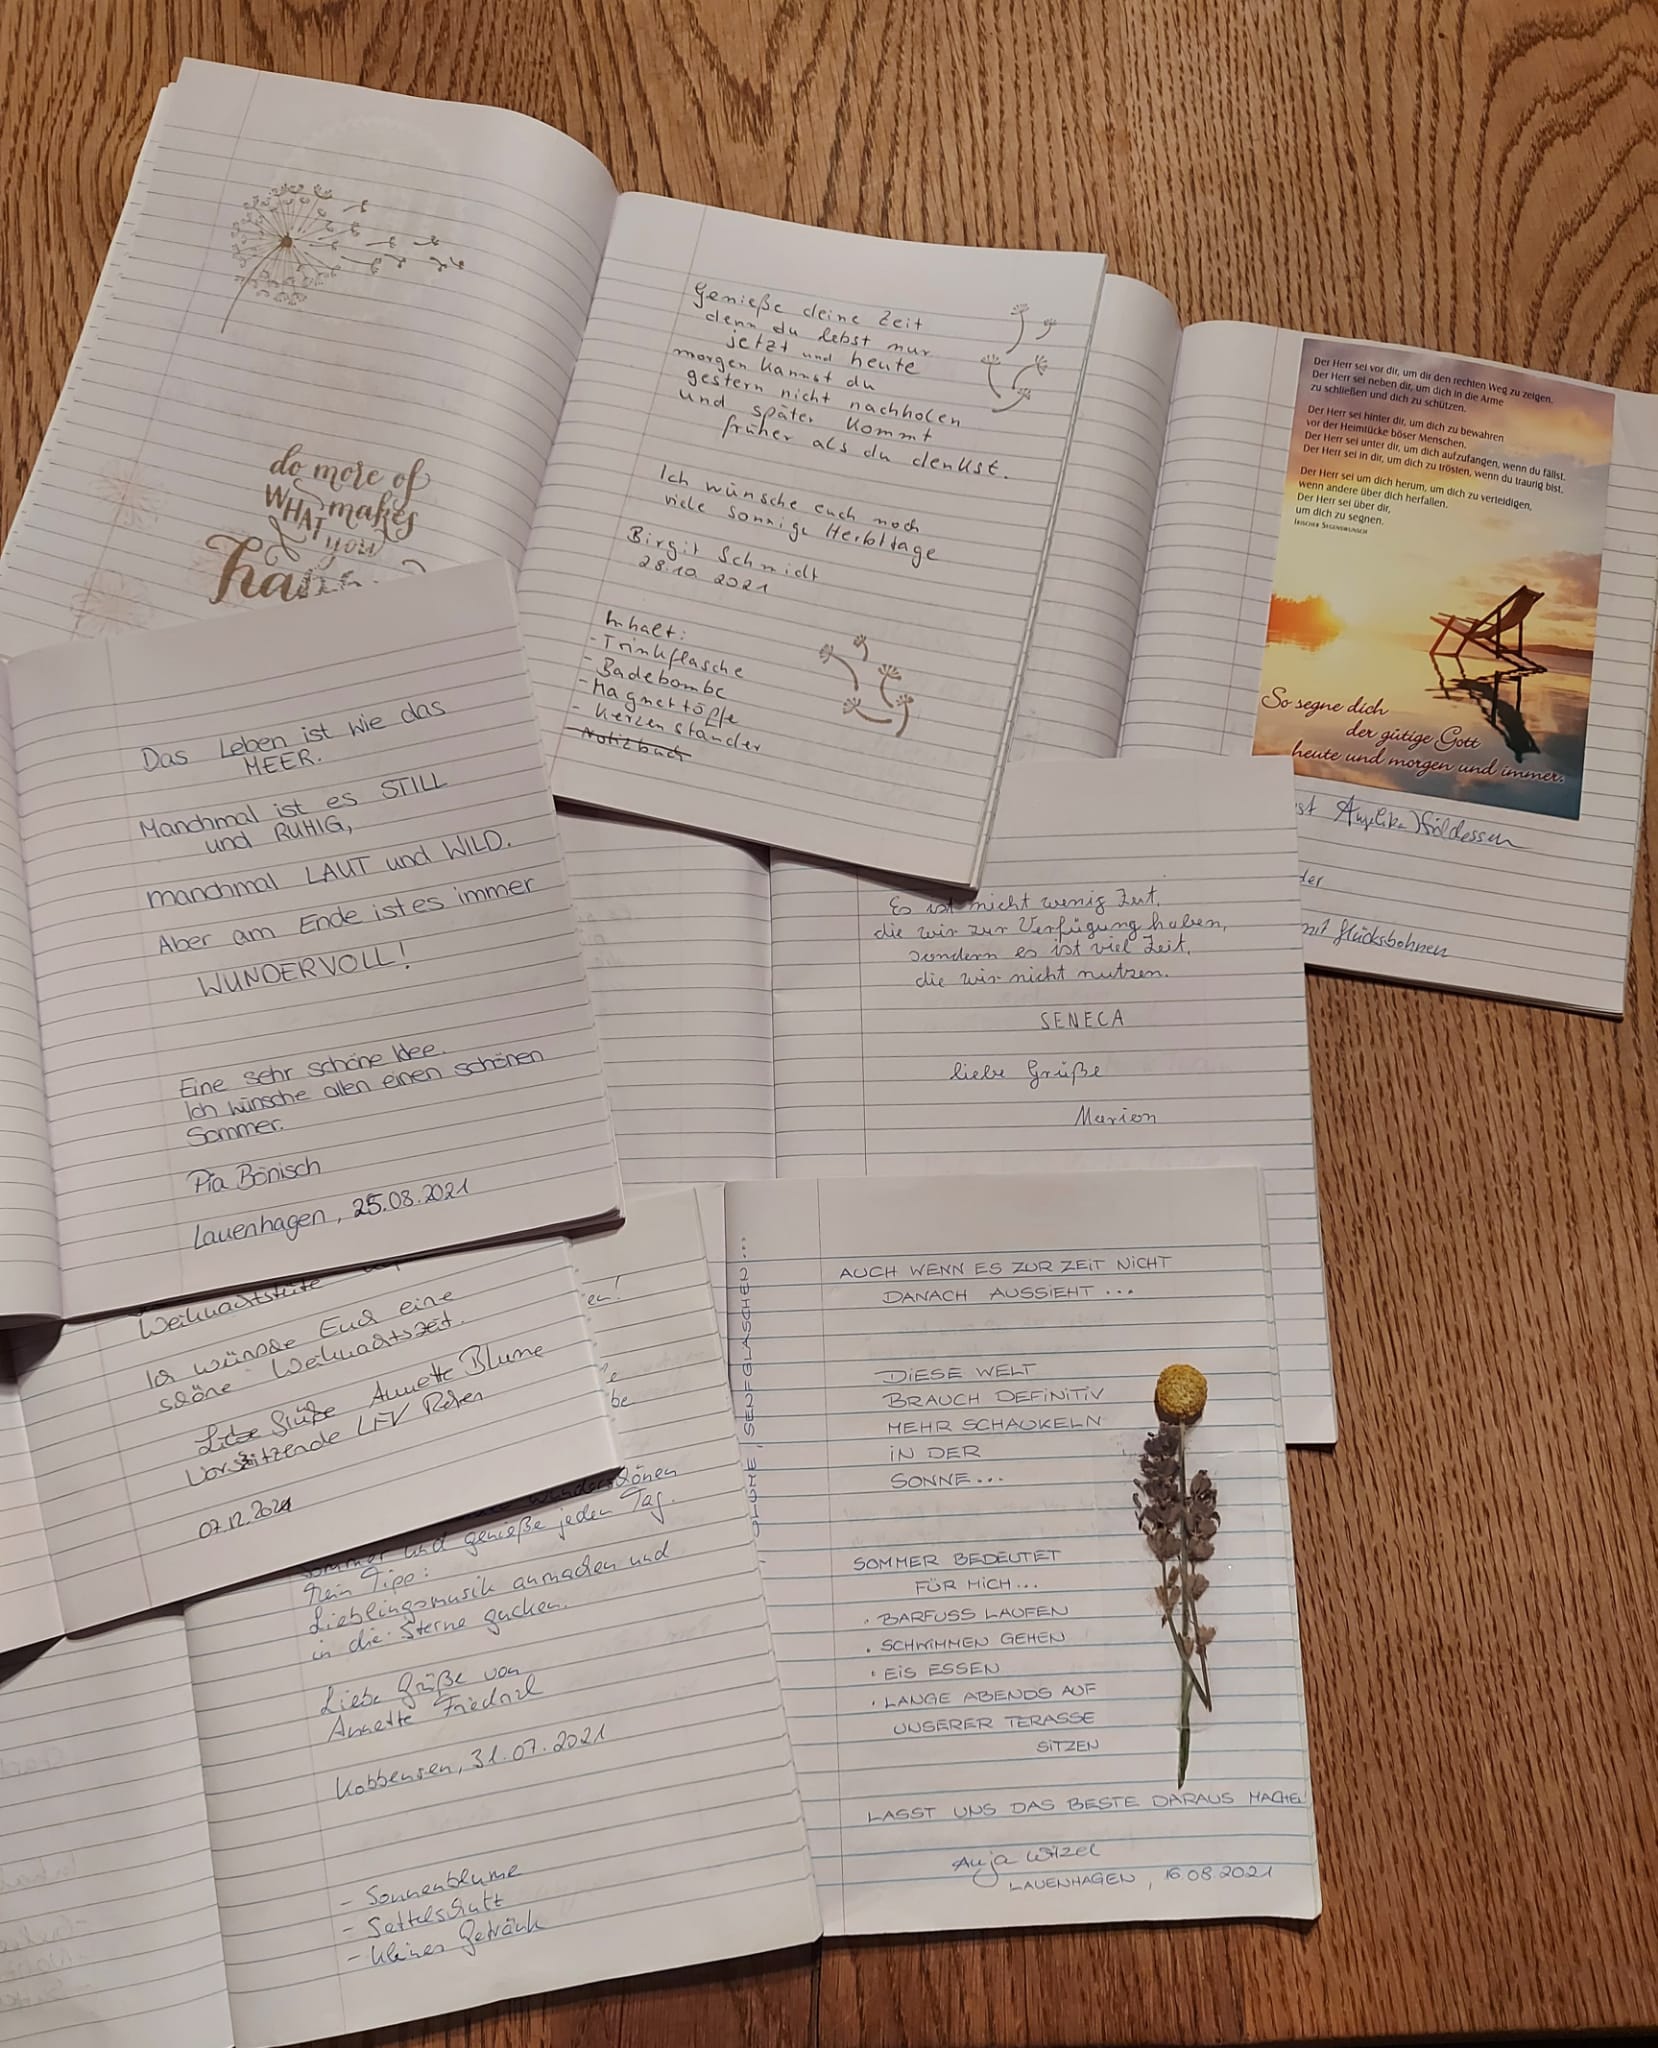 do more of
WHAT makes
you
Genieße deine Zeit
denn du lebst nur
jetzt und heute
morgen kannst du
gestern nicht nachholen
und später kommt
früher als du denkst.
Ich wünsche euch noch
viele sonnige Herbsttage
Birgit Schmidt
28.10.2021
Inhalt:
- Trinkflasche
- Badebombe
- Magnettöpfe
- Kerzenständer
Notizbuch
Der Herr sei vor dir, um dir den rechten Weg zu zeigen.
Der Herr sei neben dir, um dich in die Arme
zu schließen und dich zu schützen.
Der Herr sei hinter dir, um dich zu bewahren
vor der Heimtücke böser Menschen.
Der Herr sei unter dir, um dich aufzufangen, wenn du fällst.
Der Herr sei in dir, um dich zu trösten, wenn du traurig bist.
Der Herr sei um dich herum, um dich zu verteidigen,
wenn andere über dich herfallen.
Der Herr sei über dir,
um dich zu segnen.
Irischer Segenswunsch
So segne dich
der gütige Gott
heute und morgen und immer.
Angelika
mit Glücksbohnen
Das Leben ist wie das
MEER.
Manchmal ist es STILL
und RUHIG,
manchmal LAUT und WILD.
Aber am Ende ist es immer
WUNDERVOLL!
Eine sehr schöne Idee.
Ich wünsche allen einen schönen
Sommer.
Pia Bönisch
Lauenhagen, 25.08.2021
Es ist nicht wenig Zeit,
die wir zur Verfügung haben,
sondern es ist viel Zeit,
die wir nicht nutzen.
SENECA
liebe Grüße
Marion
Weihnachtstüte
Ich wünsche Euch eine
schöne Weihnachtszeit.
Liebe Grüße Annette Blume
Vorsitzende LFV
07.12.2021
wunderschönen
Sommer und genieße jeden Tag.
Mein Tipp:
Lieblingsmusik anmachen und
in die Sterne gucken.
Liebe Grüße von
Annette
Kobbensen, 31.07.2021
- Sonnenblume
- Sattelschutz
- kleines Getränk
SENFGLÄSCHEN...
AUCH WENN ES ZUR ZEIT NICHT
DANACH AUSSIEHT ...
DIESE WELT
BRAUCH DEFINITIV
MEHR SCHAUKELN
IN DER
SONNE...
SOMMER BEDEUTET
FÜR MICH...
· BARFUSS LAUFEN
· SCHWIMMEN GEHEN
· EIS ESSEN
· LANGE ABENDS AUF
UNSERER TERASSE
SITZEN
LASST UNS DAS BESTE DARAUS MACHEN
Anja Witzel
LAUENHAGEN, 16.08.2021